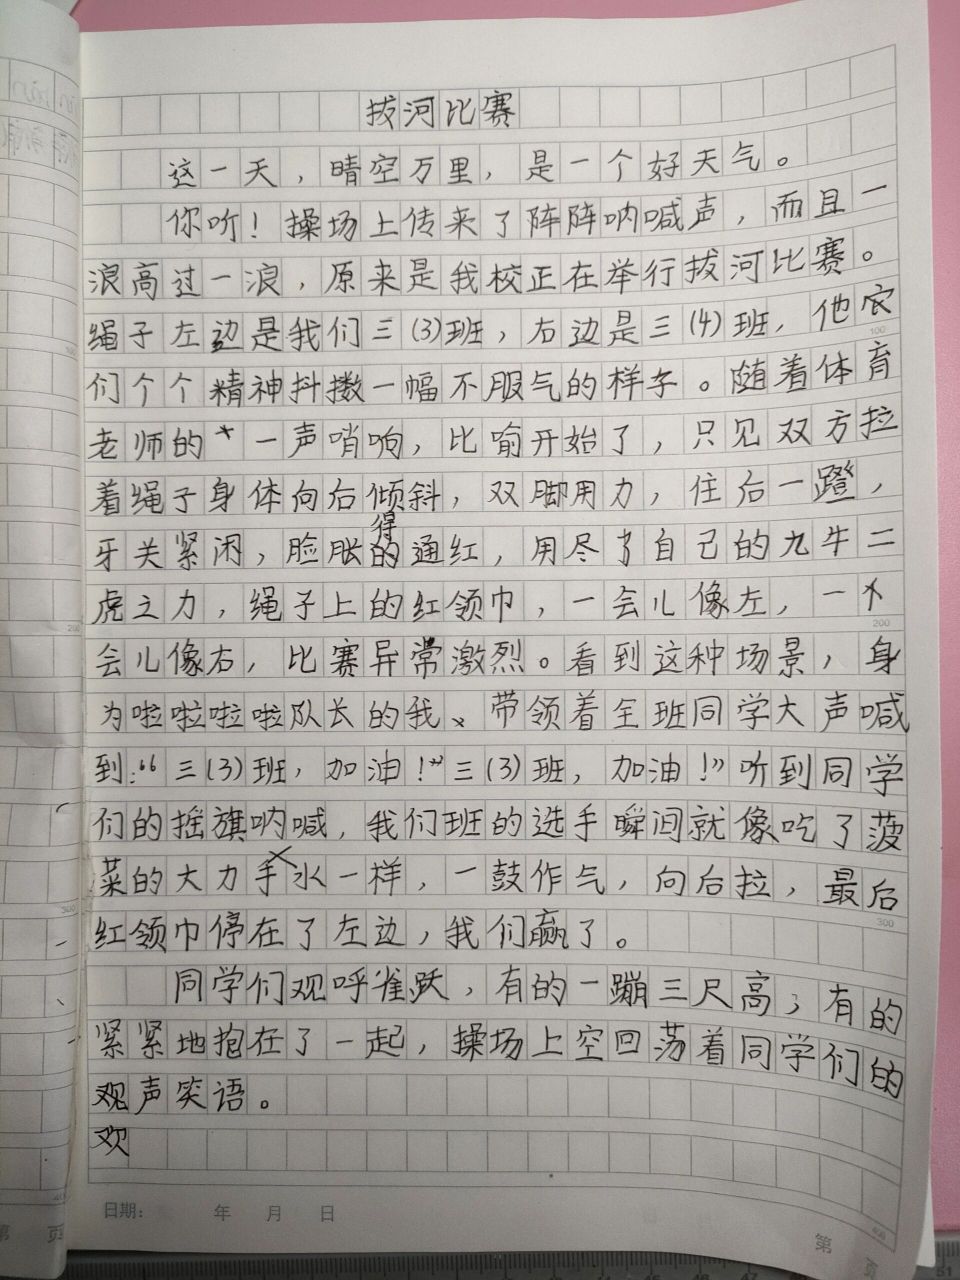 拔河比赛
这一天，晴空万里，是一个好天气。
你听！操场上传来了阵阵呐喊声，而且一
浪高过一浪，原来是我校正在举行拔河比赛。
绳子左边是我们三(3)班，右边是三(4)班，他
100
们个个精神抖擞一幅不服气的样子。随着体育
老师的一声哨响，比喻开始了，只见双方拉
着绳子身体向后倾斜，双脚用力，住后一蹬，
得
牙关紧闭，脸胀的通红，用尽了自己的九牛二
虎之力，绳子上的红领巾，一会儿像左，一
200
会儿像右，比赛异常激烈。看到这种场景，身
为啦啦啦啦队长的我、带领着全班同学大声喊
到：“三(3)班，加油！”三(3)班，加油！”听到同学
们的摇旗呐喊，我们班的选手瞬间就像吃了菠
菜的大力手水一样，一鼓作气，向后拉，最后
300
红领巾停在了左边，我们赢了。
同学们观呼雀跃，有的一蹦三尺高，有的
紧紧地抱在了一起，操场上空回荡着同学们的
观声笑语。
欢
400
日期： 年 月 日
第 页